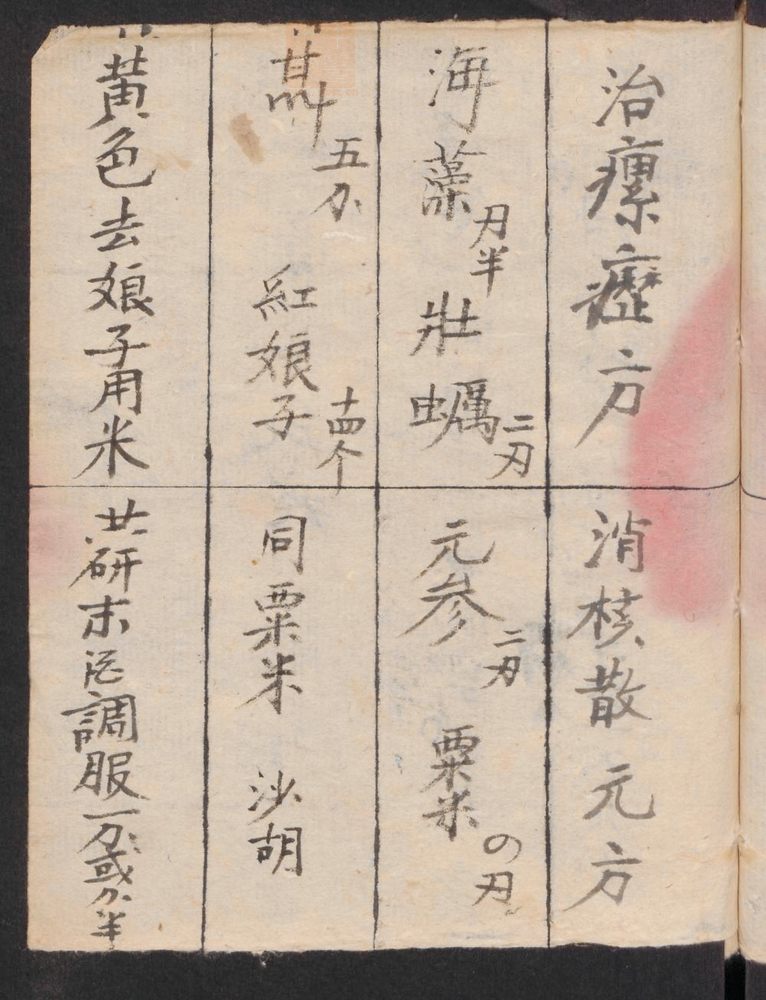 治瘰癧方 消核散 元方
海藻刄半 壯蠣二刄 元参二刄 粟米の刄
五分 紅娘子十四个 同粟米 沙胡
黃色去娘子用米 共研末 調服一分或分半